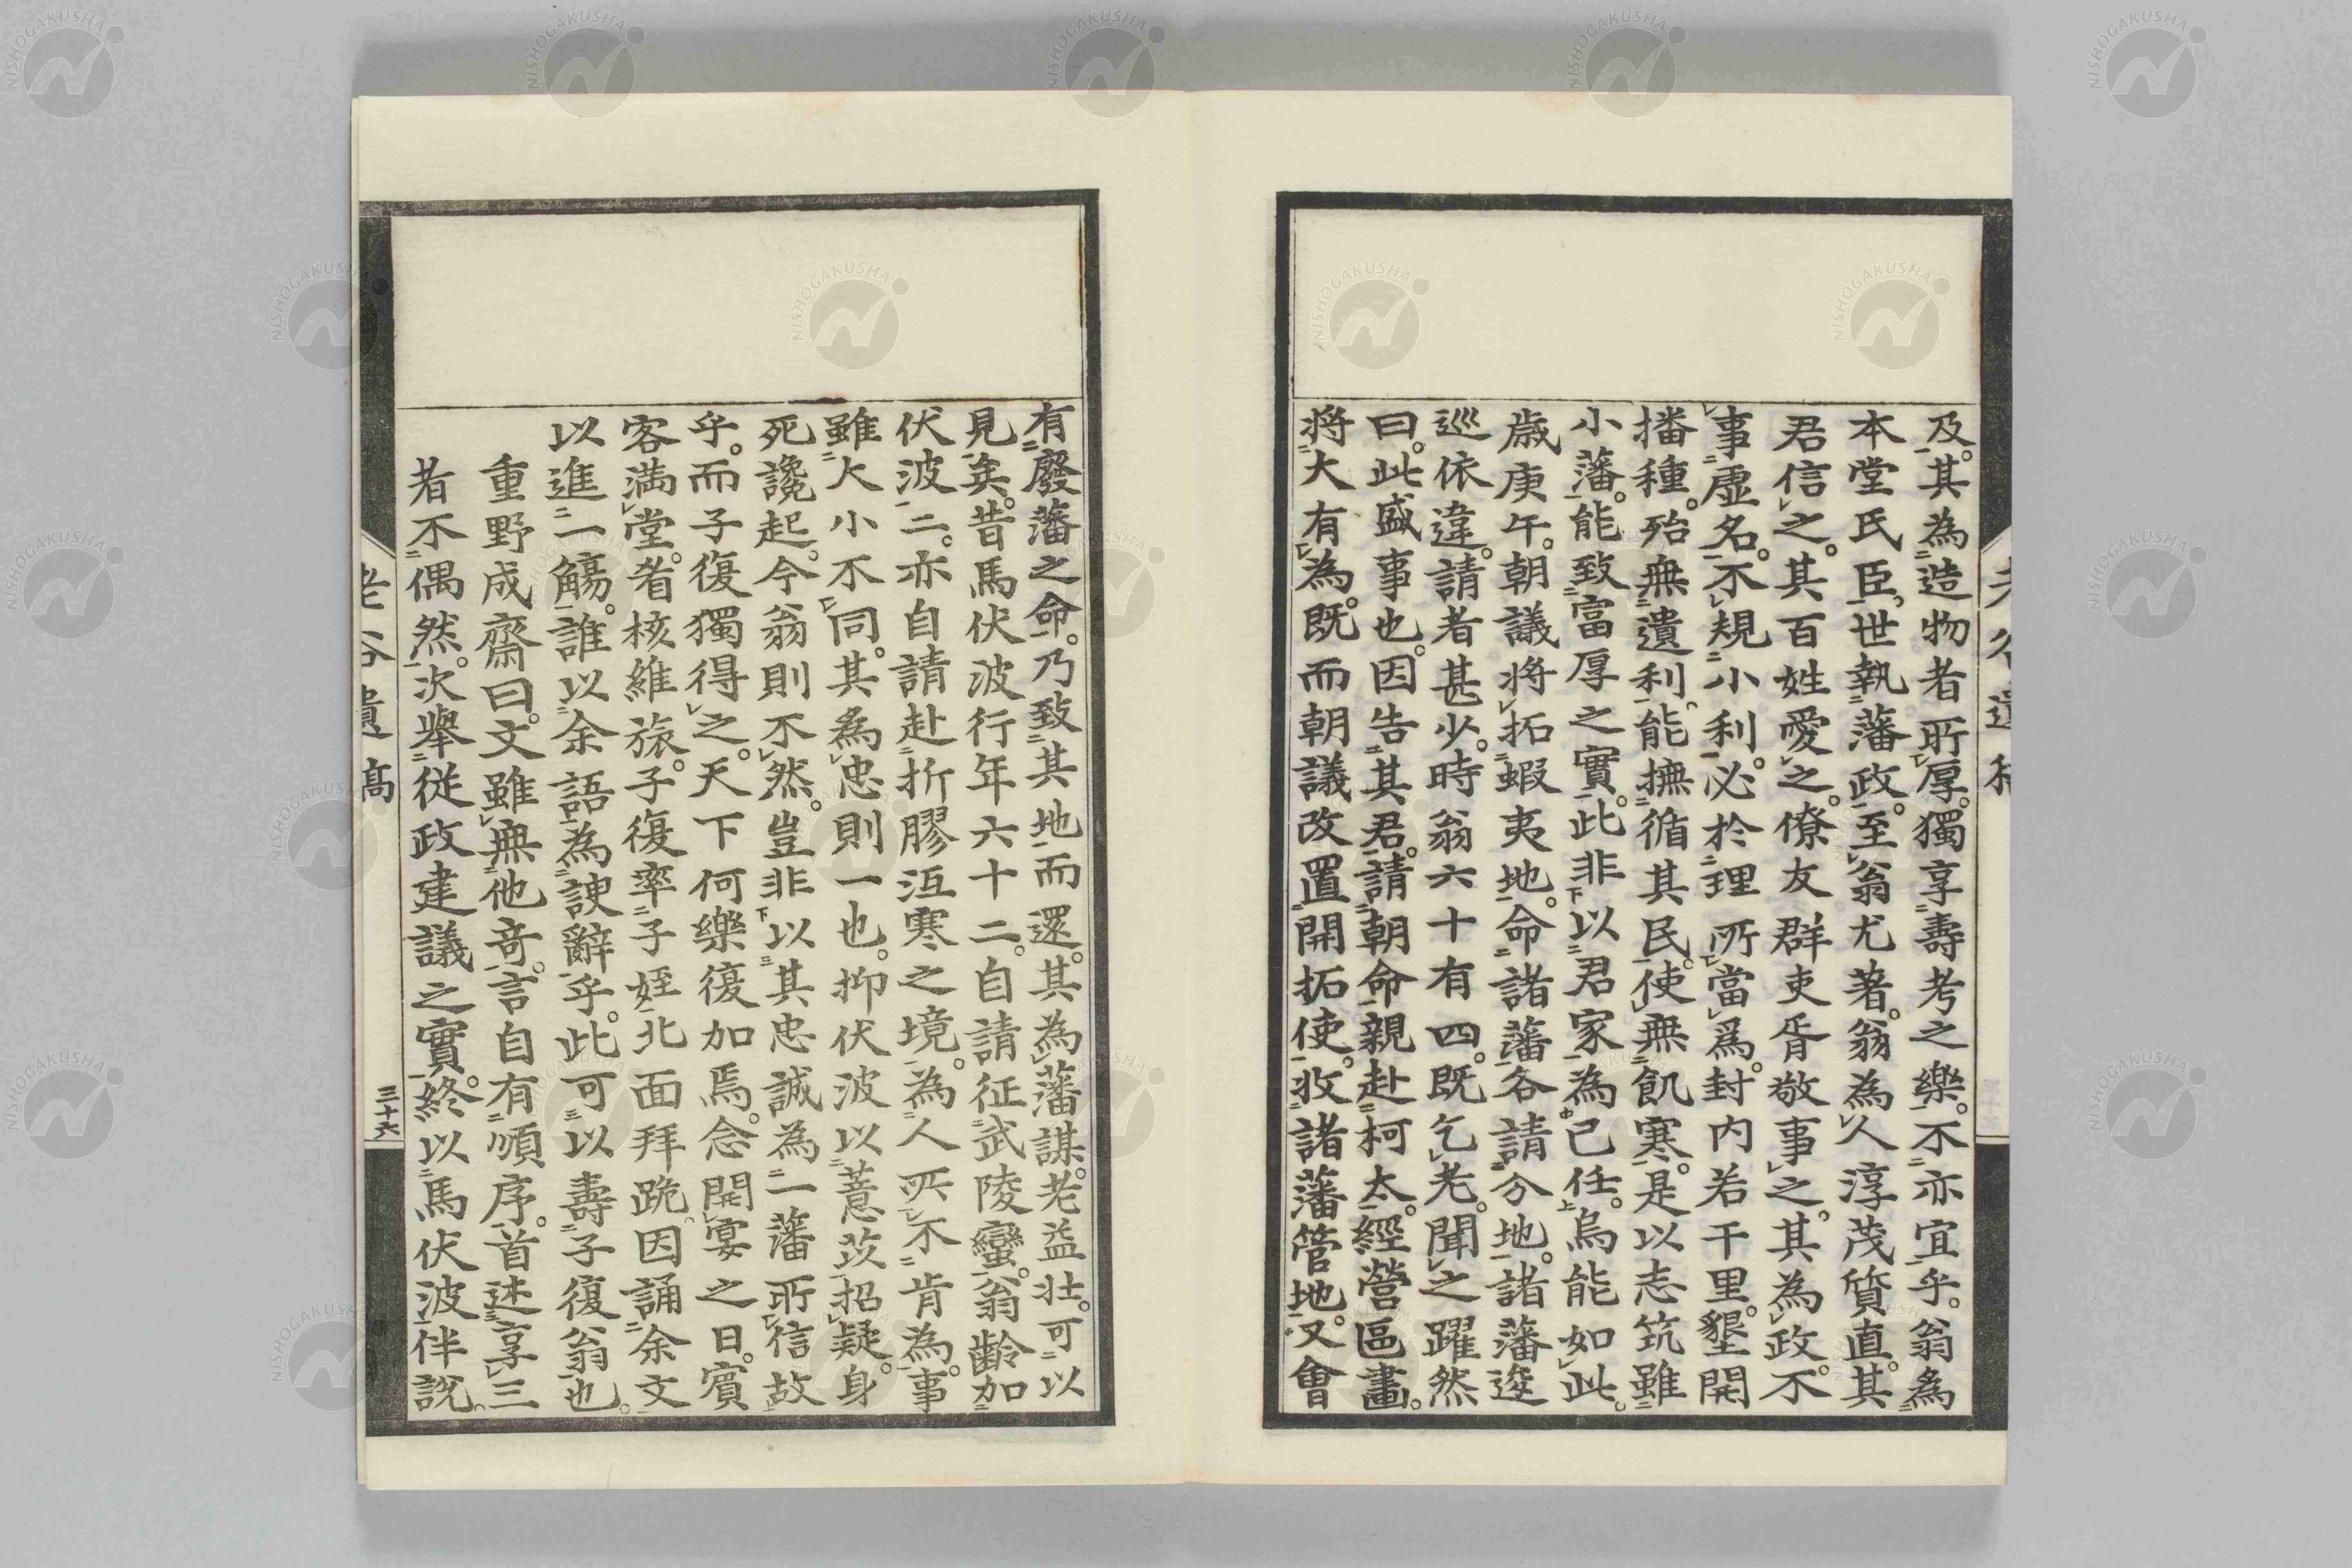 及。其為造物者所厚。獨享壽考之樂。不亦宜乎。翁為
本堂氏臣。世執藩政。至翁尤著。翁為人淳茂質直。其
君信之。其百姓愛之。僚友群吏胥敬事之。其為政。不
事虛名。不規小利。必於理所當爲。封内若干里。墾開
播種。殆無遺利。能撫循其民。使無飢寒。是以志筑雖
小藩。能致富厚之實。此非以君家為己任。烏能如此。
歳庚午。朝議将拓蝦夷地。命諸藩各請分地。諸藩逡
巡依違。請者甚少。時翁六十有四。既乞老。聞之躍然
曰。此盛事也。因告其君。請朝命親赴柯太。經營區畫。
将大有為。既而朝議改置開拓使。收諸藩管地。又會
有廢藩之命。乃致其地而還。其為藩謀。老益壮。可以
見矣。昔馬伏波行年六十二。自請征武陵蠻。翁齡加
伏波二。亦自請赴折膠沍寒之境。為人所不肯為。事
雖大小不同。其為忠則一也。抑伏波以薏苡招疑。身
死讒起。今翁則不然。豈非以其忠誠為一藩所信故
乎。而子復獨得之。天下何樂復加焉。念開宴之日。賓
客満堂。肴核維旅。子復率子姪北面拜跪。因誦余文
以進一觴。誰以余語為諛辭乎。此可以壽子復翁也。
重野成齋曰。文雖無他奇。言自有順序。首述享三
者不偶然。次擧從政建議之實。終以馬伏波伴說。
老谷遺稿
老谷遺稿
三十六
NISHOGAKUSHA